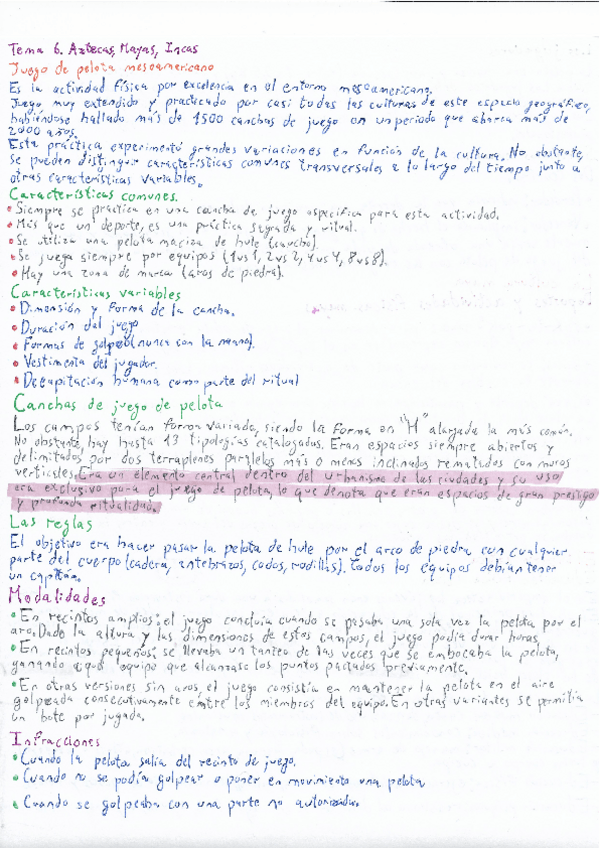 Tema 6. Aztecas, Mayas, Incas
Juego de pelota mesoamericano
Es la actividad física por excelencia en el entorno mesoamericano.
Juego muy extendido y practicado por casi todas las culturas de este espacio geográfico,
habiéndose hallado más de 1500 canchas de juego en un periodo que abarca más de
2000 años.
Esta práctica experimentó grandes variaciones en función de la cultura. No obstante,
se pueden distinguir características comunes transversales a lo largo del tiempo junto a
otras características variables.
Características comunes.
• Siempre se practica en una cancha de juego específica para esta actividad.
• Más que un deporte, es una práctica sagrada y ritual.
• Se utiliza una pelota maciza de hule (caucho).
• Se juega siempre por equipos (1vs1, 2vs2, 4vs4, 8vs8).
• Hay una zona de marca (aros de piedra).
Características variables
• Dimensión y forma de la cancha.
• Duración del juego
• Formas de golpeo (nunca con la mano).
• Vestimenta del jugador.
• Decapitación humana como parte del ritual
Canchas de juego de pelota
Los campos tenían forma variada, siendo la forma en "H" alargada la más común.
No obstante, hay hasta 13 tipologías catalogadas. Eran espacios siempre abiertos y
delimitados por dos terraplenes paralelos más o menos inclinados rematados con muros
verticales. Era un elemento central dentro del urbanismo de las ciudades y su uso
era exclusivo para el juego de pelota, lo que denota que eran espacios de gran prestigio
y profunda ritualidad.
Las reglas
El objetivo era hacer pasar la pelota de hule por el arco de piedra con cualquier
parte del cuerpo (cadera, antebrazos, codos, rodillas). Todos los equipos debían tener
un capitán.
Modalidades
• En recintos amplios: el juego concluía cuando se pasaba una sola vez la pelota por el
aro. Dado la altura y las dimensiones de estos campos, el juego podía durar horas.
• En recintos pequeños: se llevaba un tanteo de las veces que se embocaba la pelota,
ganando aquel equipo que alcanzase los puntos pactados previamente.
• En otras versiones sin aros, el juego consistía en mantener la pelota en el aire
golpeada consecutivamente entre los miembros del equipo. En otras variantes se permitía
un bote por jugada.
Infracciones
• Cuando la pelota salía del recinto de juego.
• Cuando no se podía golpear o poner en movimiento una pelota
• Cuando se golpeaba con una parte no autorizada.